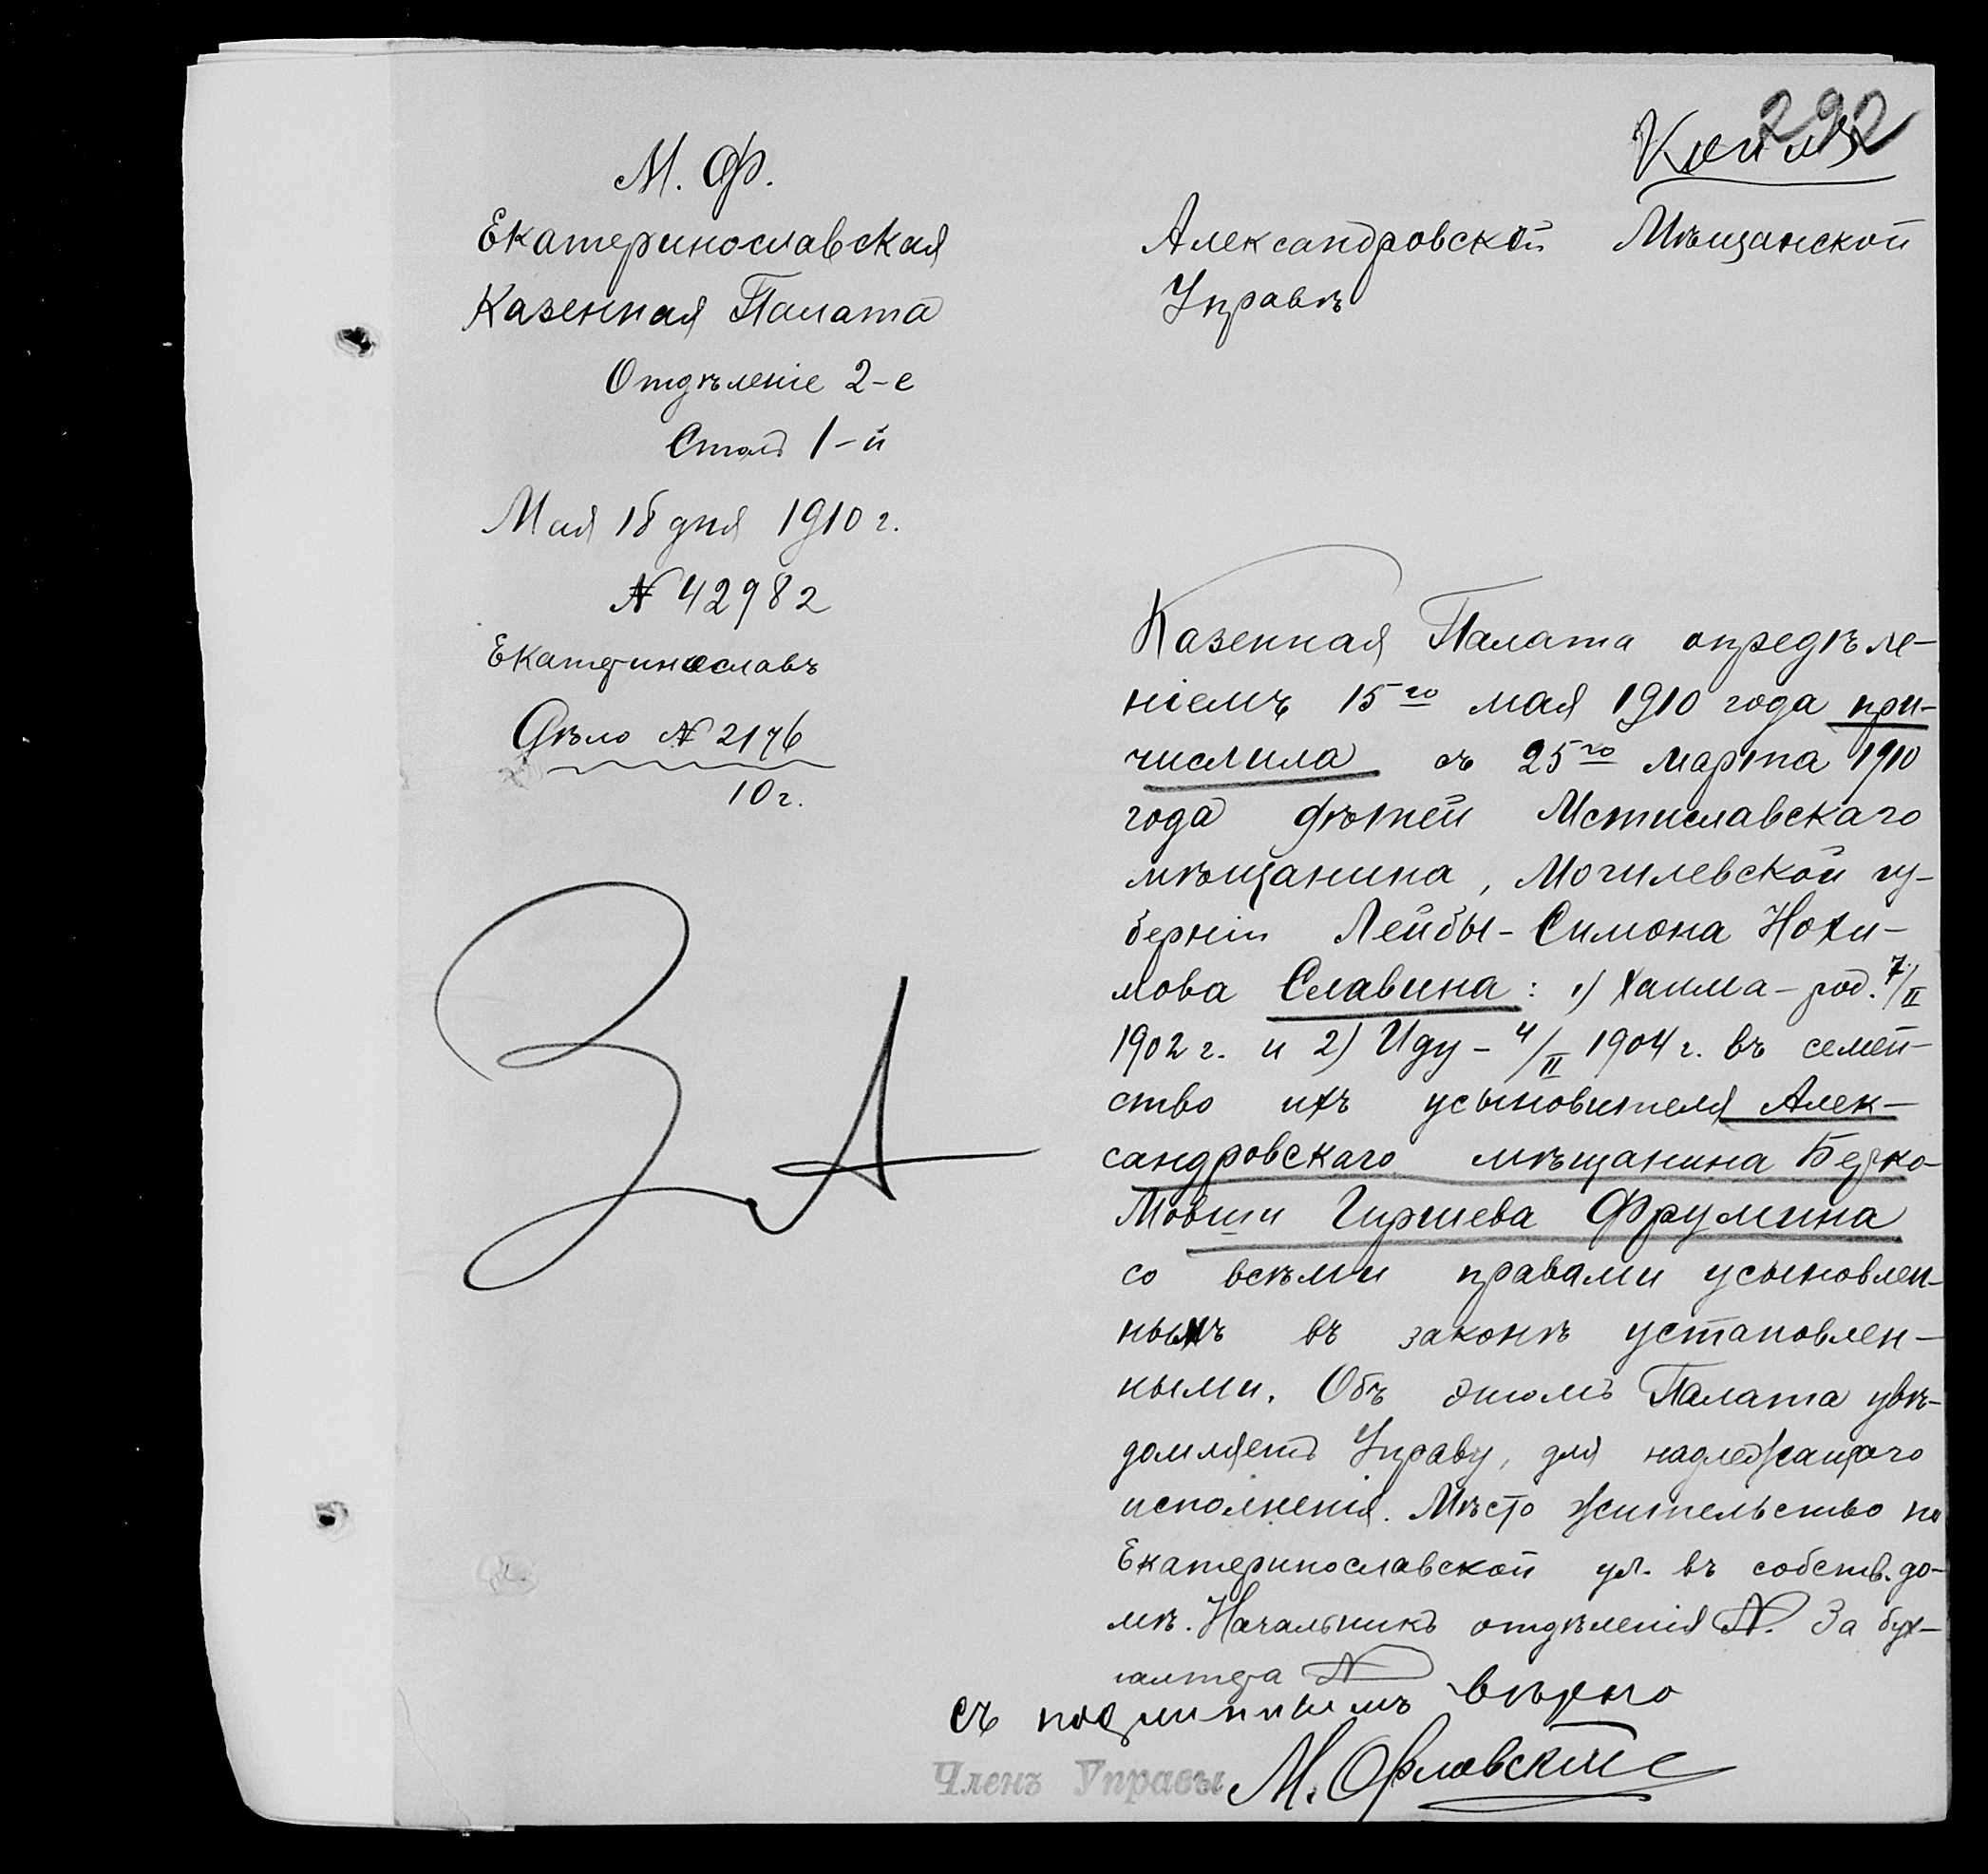 292
Копія
М. Ф.
Екатеринославская
Казенная Палата
Отдѣленіе 2-е
Столъ 1-й
Мая 18 дня 1910 г.
№ 42982
Екатеринославъ
Дѣло № 2176
10 г.
Александровской Мѣщанской
Управѣ
Казенная Палата опредѣле-
ніемъ 15го мая 1910 года при-
числила съ 25го марта 1910
года дѣтей Мстиславскаго
мѣщанина, Могилевской гу-
берніи Лейбы-Симона Нохи-
мова Славина: 1) Хаима-род. 7/II
1902 г. и 2) Иду - 4/II 1904 г. въ семей-
ство ихъ усыновителя Алек-
сандровскаго мѣщанина Берко-
Мовши Гиршева Фрумина
со всѣми правами усыновлен-
ныхъ въ законѣ установлен-
ными. Объ этомъ Палата увѣ-
домляетъ Управу, для надлежащаго
исполненія. Мѣсто жительство по
Екатеринославской ул. въ собств. до-
мѣ. Начальникъ отдѣленія N. За бух-
галтера N
съ подлиннымъ вѣрно
Членъ Управы М. Орловскій